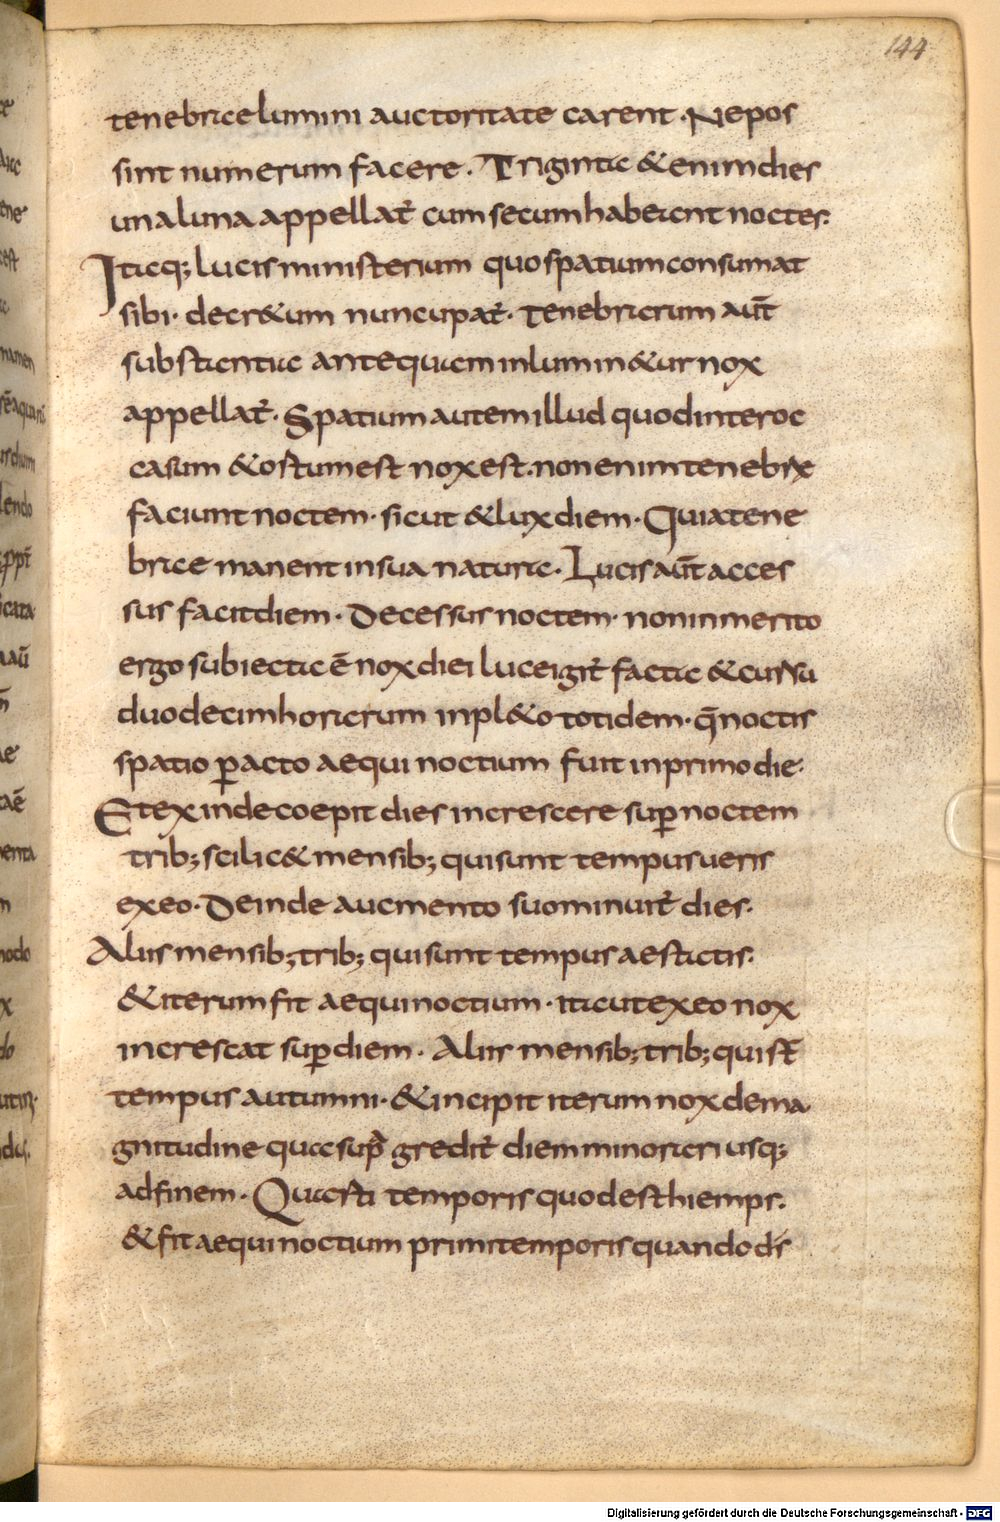 144
tenebrae lumini auctoritate carent. Nepos
sint numerum facere. Triginta &enim dies
una luna appellat̄ cum secum habeant noctes.
Itaq; lucis ministerium quo spatium consumat
sibi. decr&um nuncupat̄. tenebrarum aut̄
substantia antequam inlumin&ur nox
appellat̄. Spatium autem illud quod inter oc
casum &ostum est nox est. non enim tenebre
faciunt noctem. sicut &lux diem. Quia tene
brae manent in sua natura. Lucis aut̄ acces
sus facit diem. Decessus noctem. non inmerito
ergo subiecta ē nox diei luce igit̄ facta &cursu
duodecim horarum inpl&o totidem. q̄ noctis
spatio ꝑacto aequinoctium fuit in primo die.
Et exinde coepit dies increscere suꝑ noctem
trib; scilic& mensib; qui sunt tempus ueris
ex eo. Deinde aucmento suo minuit̄ dies.
Aliis mensib; trib; qui sunt tempus aestatis.
&iterum fit aequinoctium. ita ut ex eo nox
increscat suꝑ diem. Aliis mensib; trib; qui st̄
tempus autumni. &incipit iterum nox de ma
gnitudine qua suꝑ gredit̄ diem minorari usq;
ad finem. Quarti temporis quod est hiemps.
&fit aequinoctium primi temporis quando ds̄
Digitalisierung gefördert durch die Deutsche Forschungsgemeinschaft - DFG